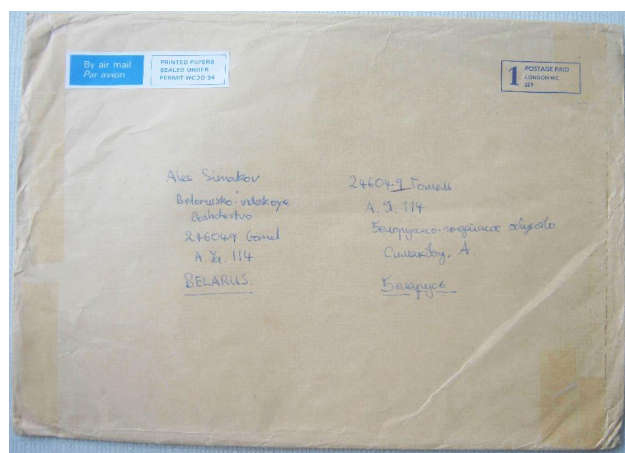 By air mail
Par avion
PRINTED PAPERS
SEALED UNDER
PERMIT WCDO 94
1
POSTAGE PAID
LONDON WC
Ales Simakov
Belorussko-indiskoye
Obshchestvo
246049 Gomel
A. Ya. 114
BELARUS.
246049 Гомель
А. Я. 114
Белорусско-индийское общество
Симакову, А
Беларусь